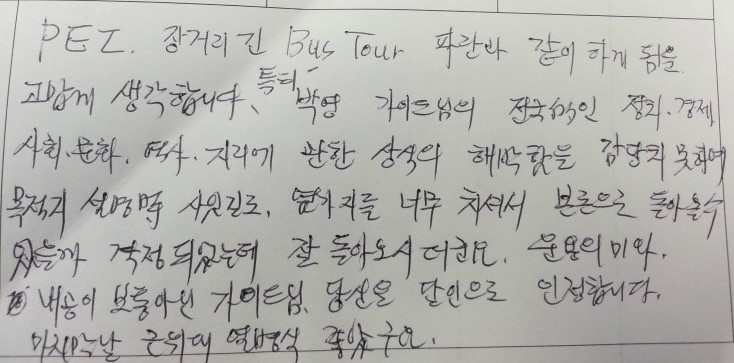 PEI. 장거리 긴 Bus Tour 파란바 같이 하게 됨을
고맙게 생각합니다. 특히 박영 가이드님의 전국적인 정치.경제
사회.문화. 역사.지리에 관한 상식의 해박함을 감당치 못하여
목적지 설명때 사잇길로, 곁가지를 너무 치셔서 본론으로 돌아올수
있을까 걱정되었는데 잘 돌아오시더군요. 운용의 미와.
내공이 보통아닌 가이드님. 당신은 달인으로 인정합니다.
마지막날 근위대 열병식 좋았구요.